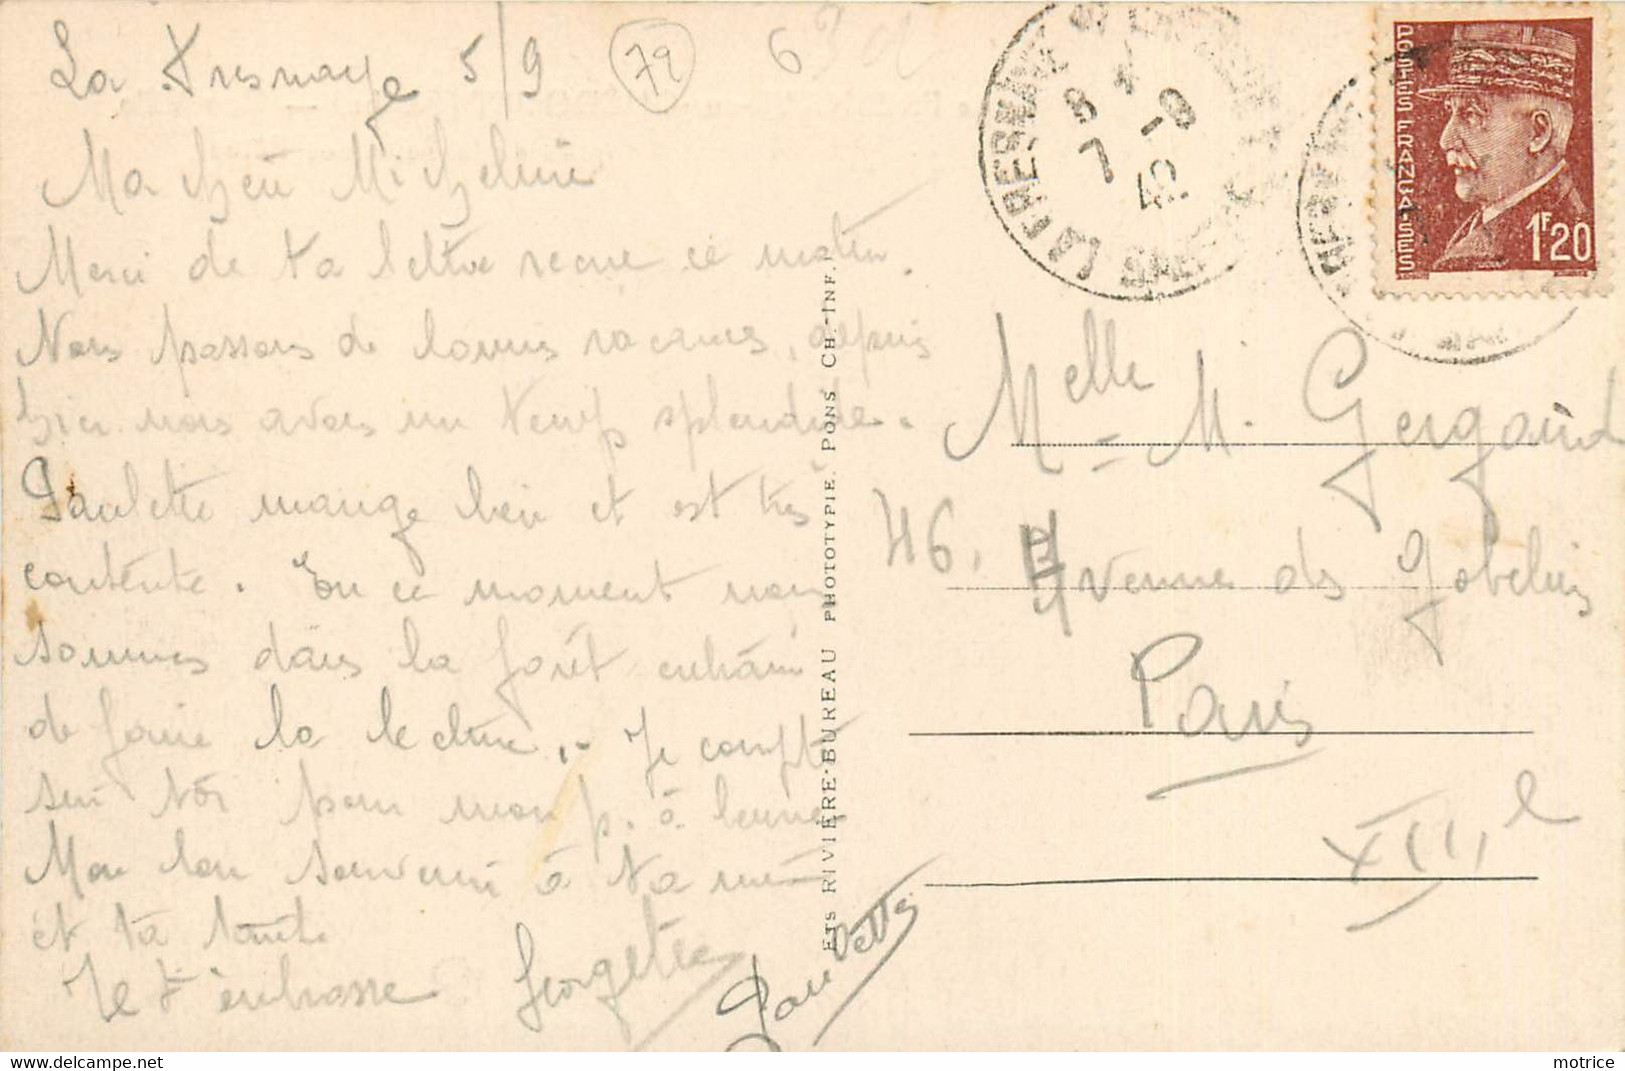 La Fresnaye 5/9
72
Ma chère Micheline
Merci de ta lettre reçue ce matin.
Nous passons de bonnes vacances, depuis
hier nous avons un temps splendide.
Paulette mange bien et est très
contente. En ce moment nous
sommes dans la forêt entrain
de faire la lecture. Je compte
sur toi pour mon p. à
Mon bon souvenir à ta
et ta tante
Je t'embrasse Georgette
Paulette
ETS RIVIÈRE-BUREAU PHOTOTYPIE. PONS CH.-INF.
LA FRESNAYE S CHEDOUET
SARTHE
8
7 -9
42
POSTES FRANÇAISES
1F20
Melle M. Gergaud
46, Avenue des Gobelins
Paris
XIII, e
motrice